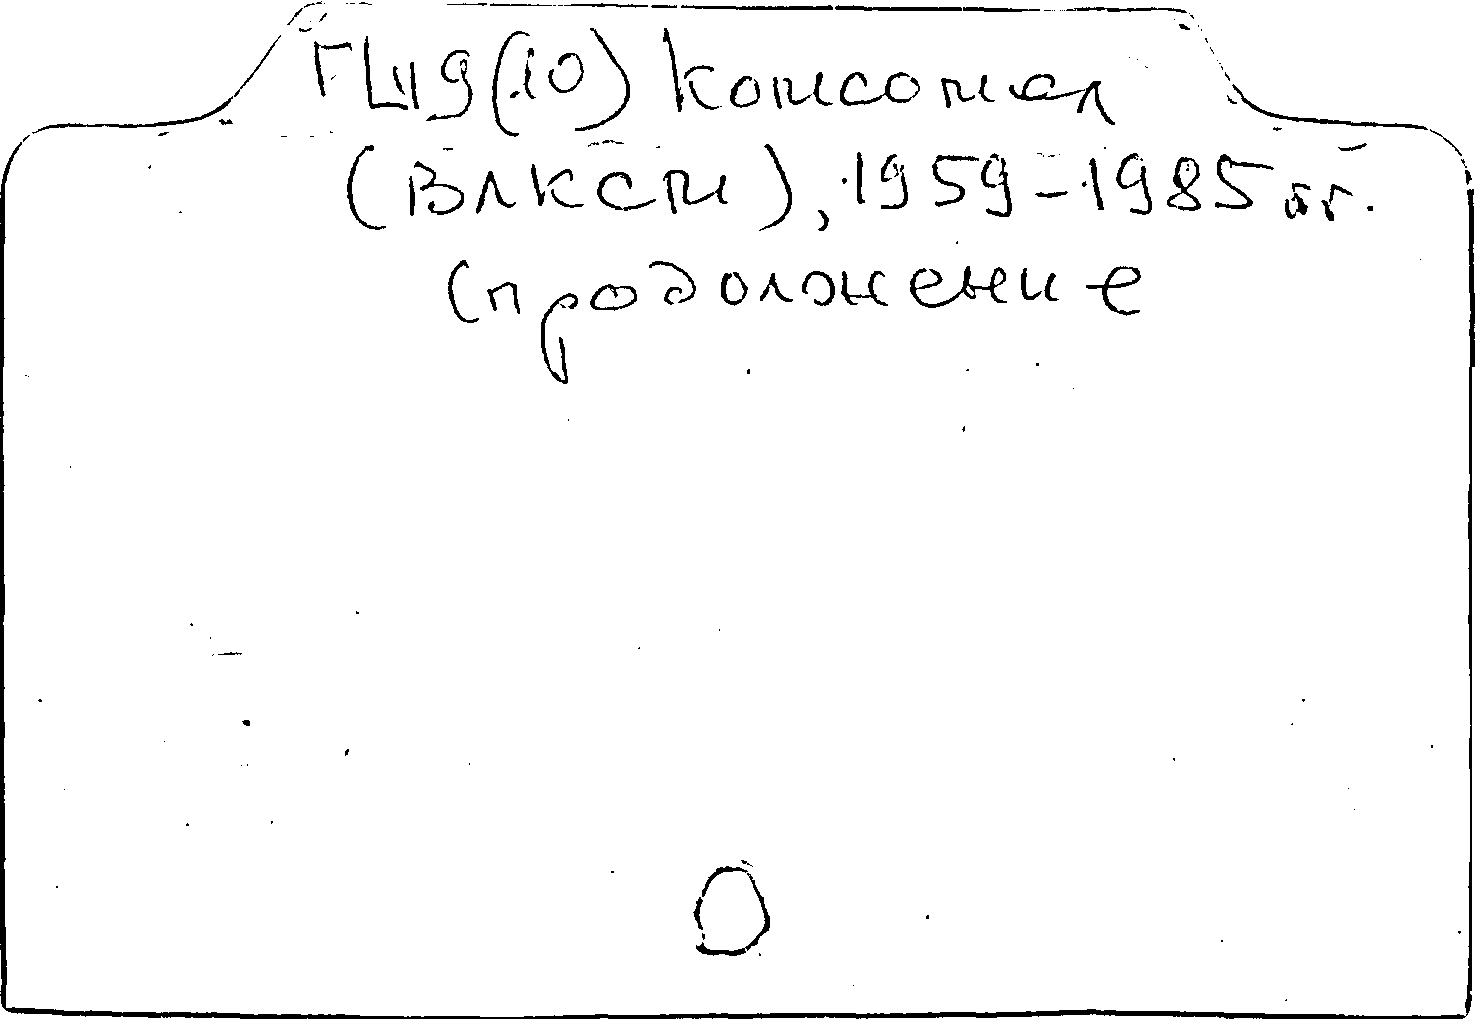 ГЦ119(10) Комсомол
(ВЛКСМ), 1959-1985 гг.
(продолжение